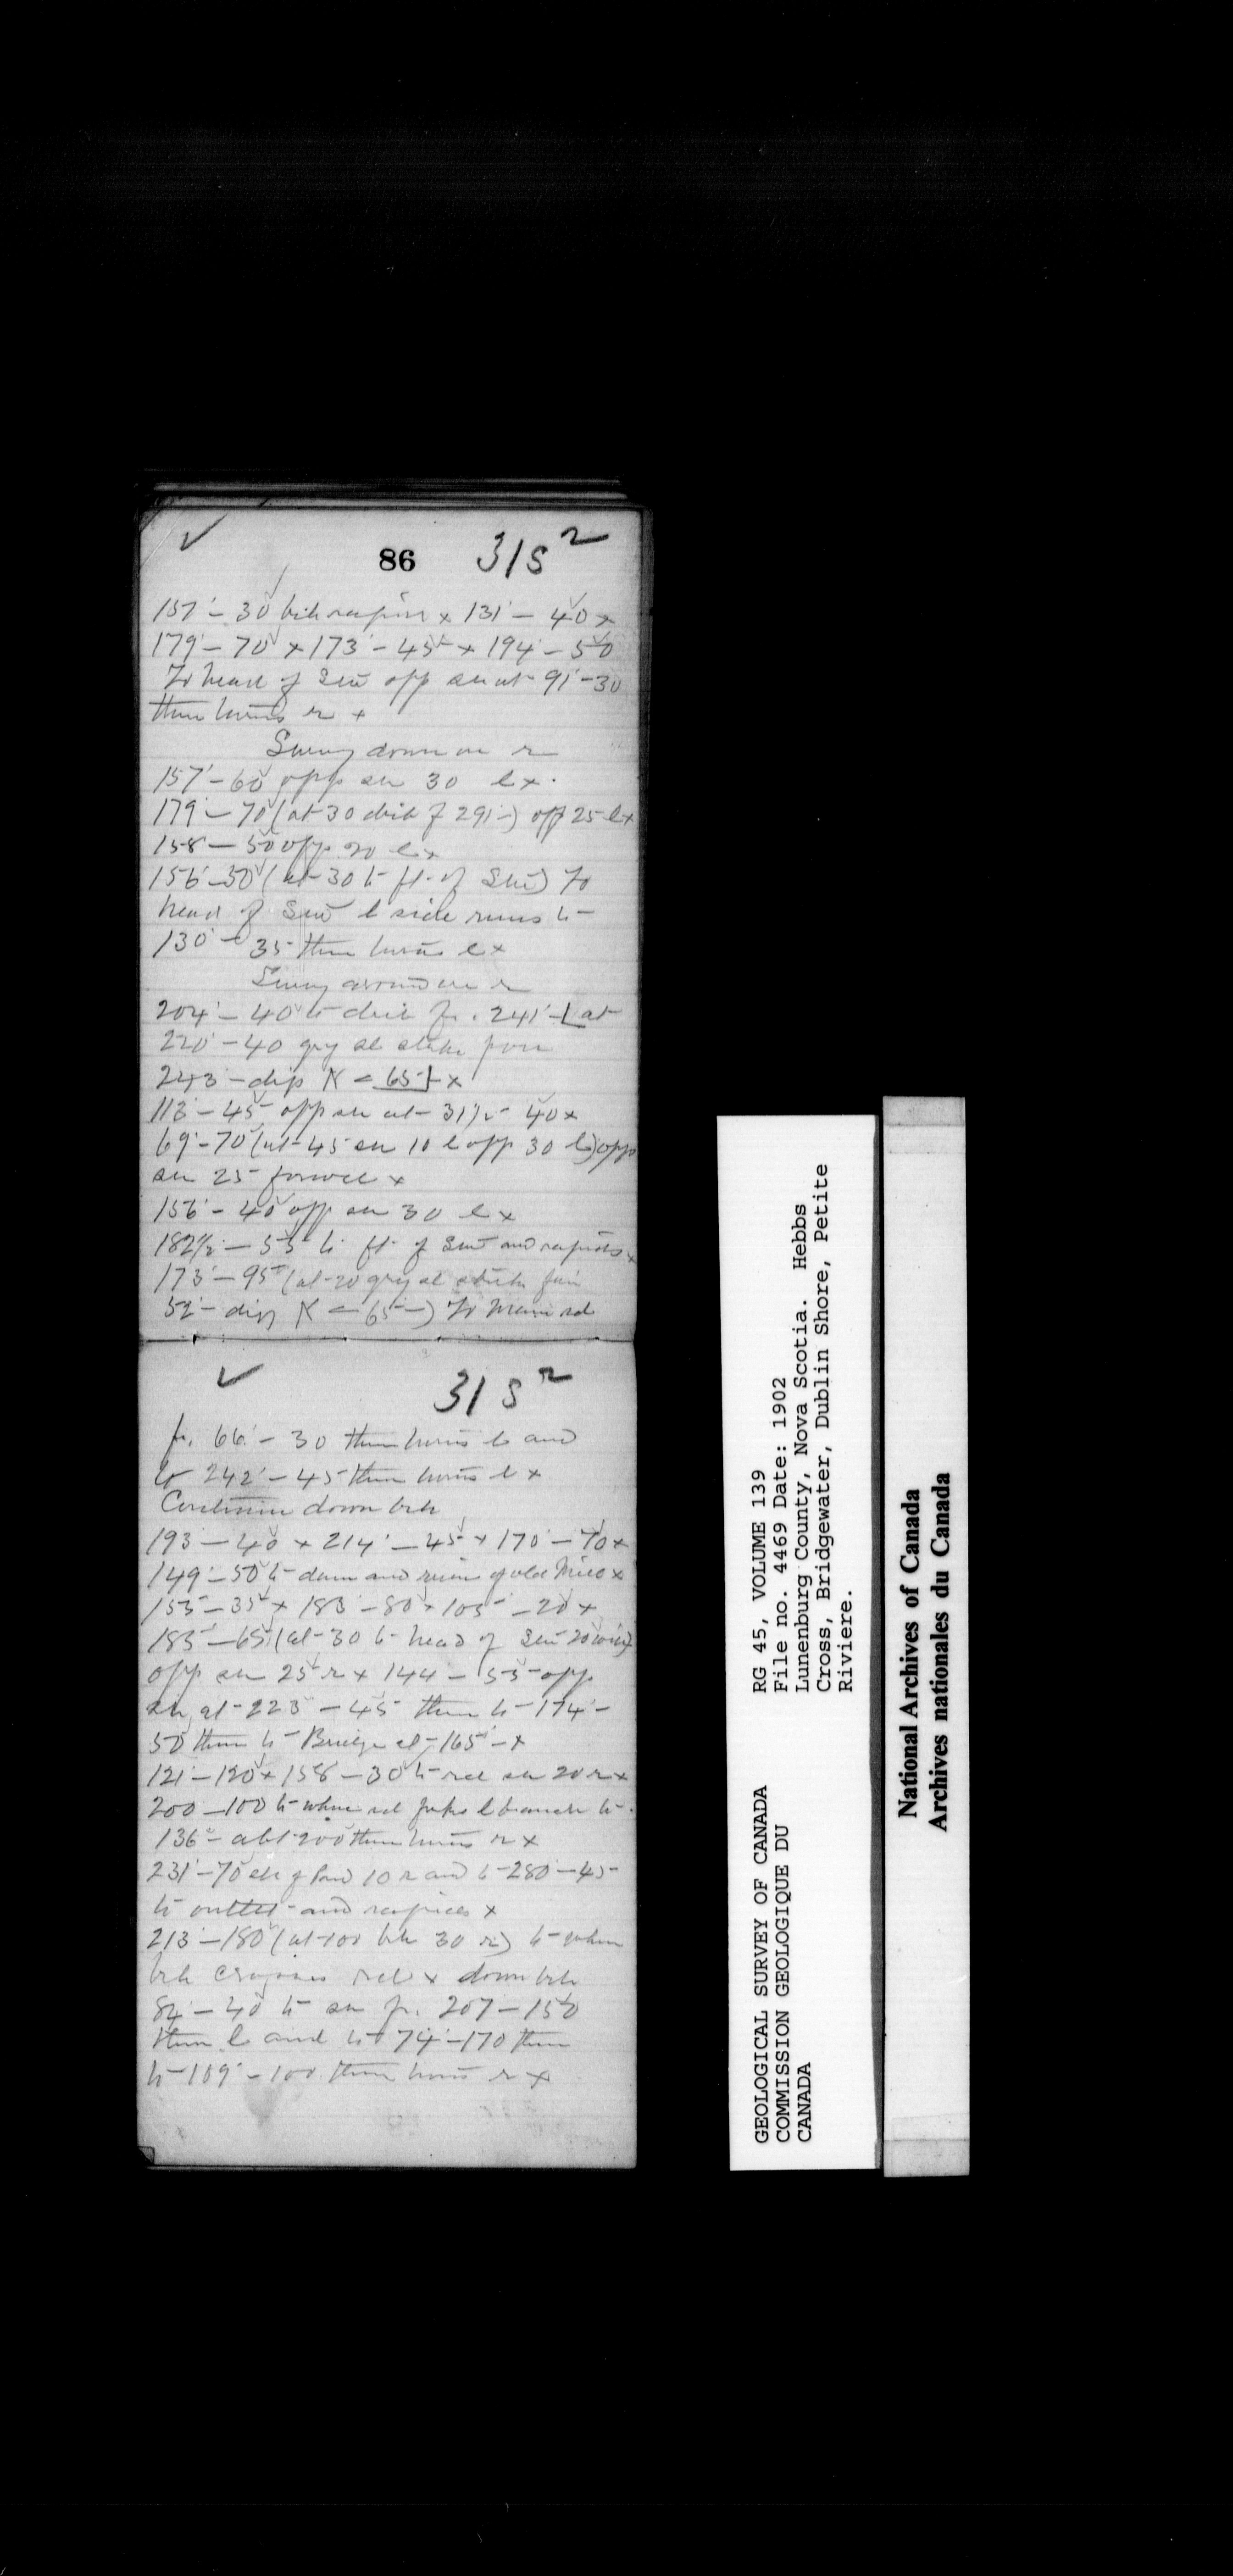 86 31 S 2
157' - 30 × 131' - 40 ×
179' - 70 × 173' - 45 × 194' - 50
To head of opp at 91' - 30
then turns r ×
Survey down on r
157' - 60 opp 30 l ×
179' - 70 (at 30 of 291' -) opp 25 l ×
158 - 50 opp 20 l ×
156' - 30 (at 30 to ft. of ) To
head of l side runs to
130' - 35 then turns l ×
Survey around on r
204' - 40 to fr. 241' - at
220' - 40 gry sl strike
243' - dip N = 65 ×
113' - 45 opp at 317 - 40 ×
69' - 70 (at 45 10 l opp 30 l) opp
25 ×
156' - 40 opp 30 l ×
182 1/2 - 55 to ft. of and rapids ×
173' - 95 (at 20 gry sl strike
52' - dip N = 65 -) To main rd
31 S 2
fr. 66' - 30 then turns l and
to 242' - 45 then turns l ×
Continue down brk
193' - 40 × 214' - 45 × 170' - 70 ×
149' - 50 to dam and ruins of old Mill ×
155' - 35 × 183' - 80 × 105' - 20 ×
185' - 65 (at 30 to head of 20 wide)
opp 25 r × 144 - 55 opp
at 223' - 45 then to 174' -
50 then to Bridge at 165' - ×
121' - 120 × 158' - 30 to rd 20 r ×
200 - 100 to where rd forks l branch to
136' - abt 200 then turns r ×
231' - 70 of Pond 10 r and to 280' - 45
to outlet and rapids ×
213' - 180 (at 100 brk 30 r) to where
brk crosses rd × down brk
84' - 40 to fr. 207' - 150
then l and to 74' - 170 then
to 109' - 100 then turns r ×
GEOLOGICAL SURVEY OF CANADA
COMMISSION GEOLOGIQUE DU
CANADA
RG 45, VOLUME 139
File no. 4469 Date: 1902
Lunenburg County, Nova Scotia. Hebbs
Cross, Bridgewater, Dublin Shore, Petite
Riviere.
National Archives of Canada
Archives nationales du Canada